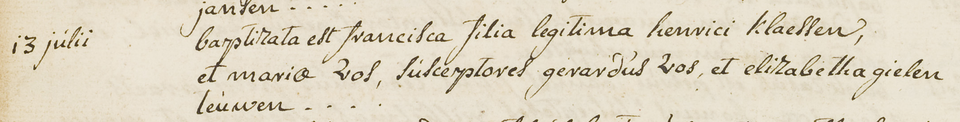 jansen .....
13 júlii baptizata est francisca filia legitima henrici Klaessen,
et mariæ Vos, súsceptores gerardús Vos, et elizabetha gielen
leúwen ....